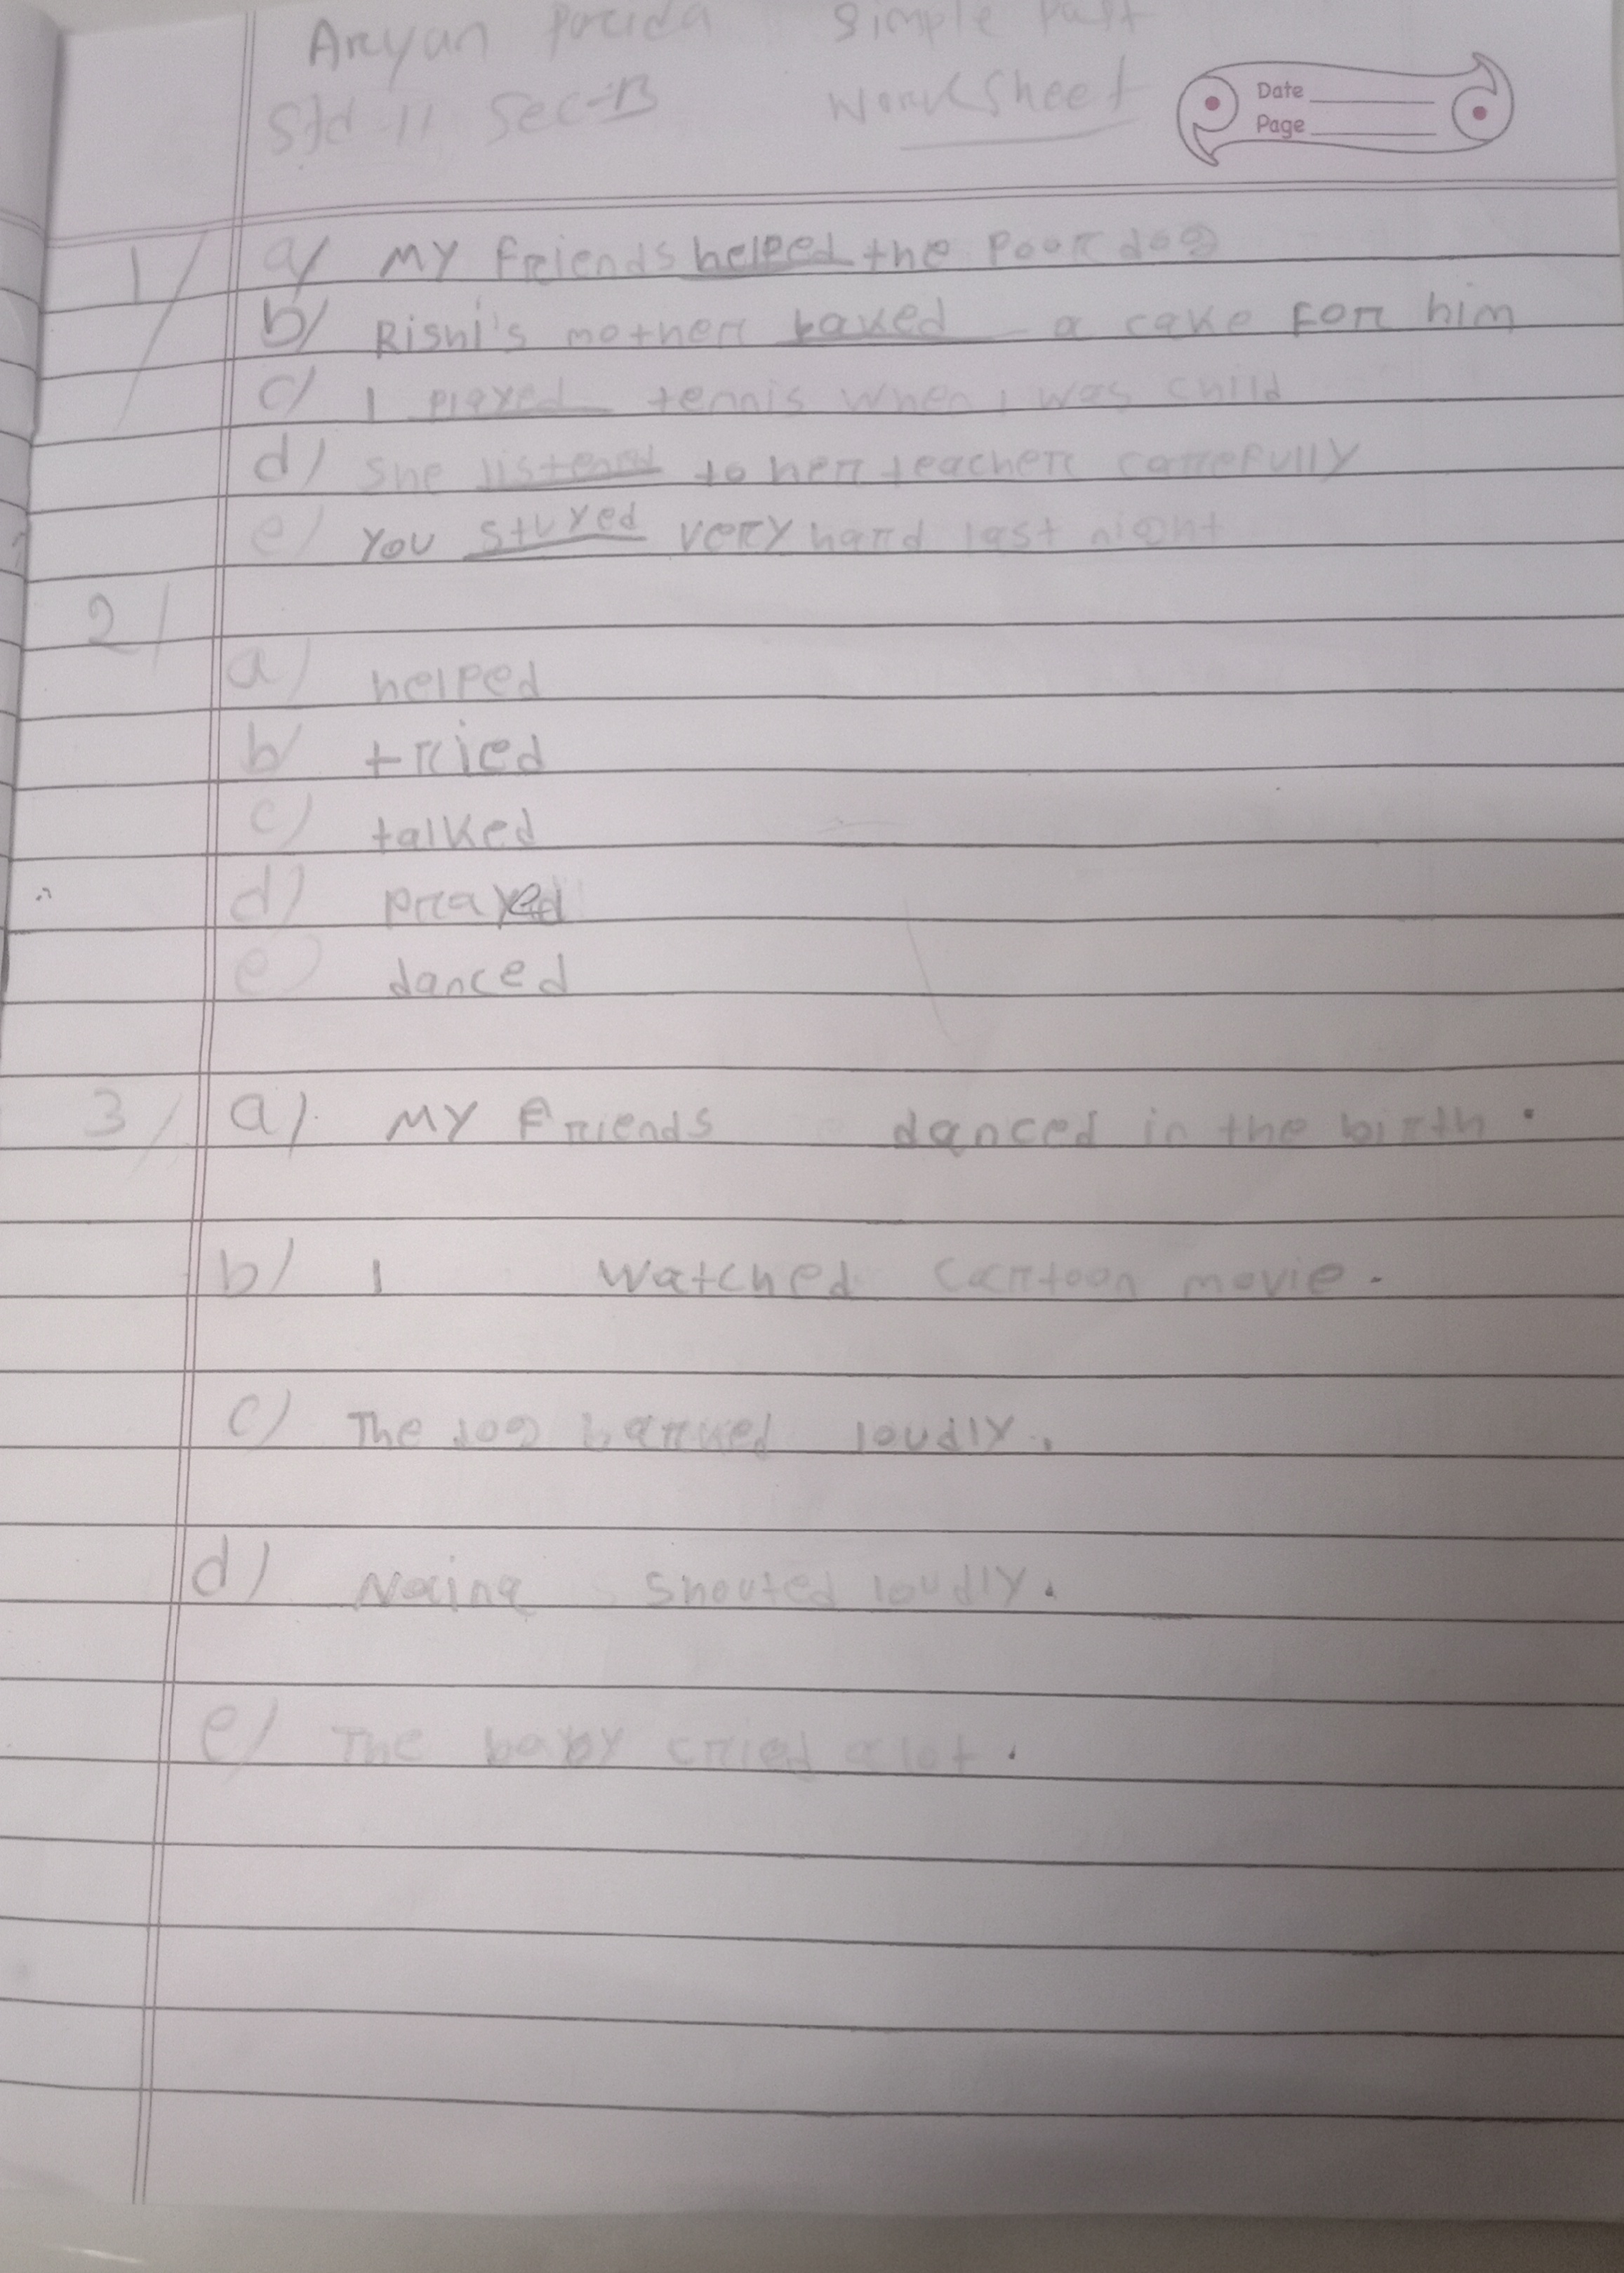 Aryan Parida Simple Past
Std II Sec-B Worksheet
Date
Page
1/ a/ My friends helped the poor dog
b/ Rishi's mother baked a cake for him
c) I played tennis when I was child
d) She listened to her teacher carefully
e) You stuyed very hard last night
2/
a) helped
b/ tried
c) talked
d) prayed
e) danced
3/ a) My friends danced in the birth.
b) I watched cartoon movie.
c) The dog barked loudly.
d) shouted loudly.
e) The baby cried a lot.